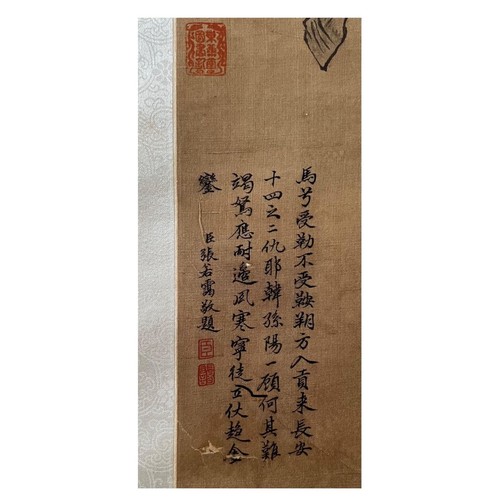 馬兮受勒不受鞍朔方入貢来長安
十四之二仇耶韓孫陽一顧何其難
竭駑應耐邊風寒寧徒立仗趨金
鑾
臣張若靄敬題
臣